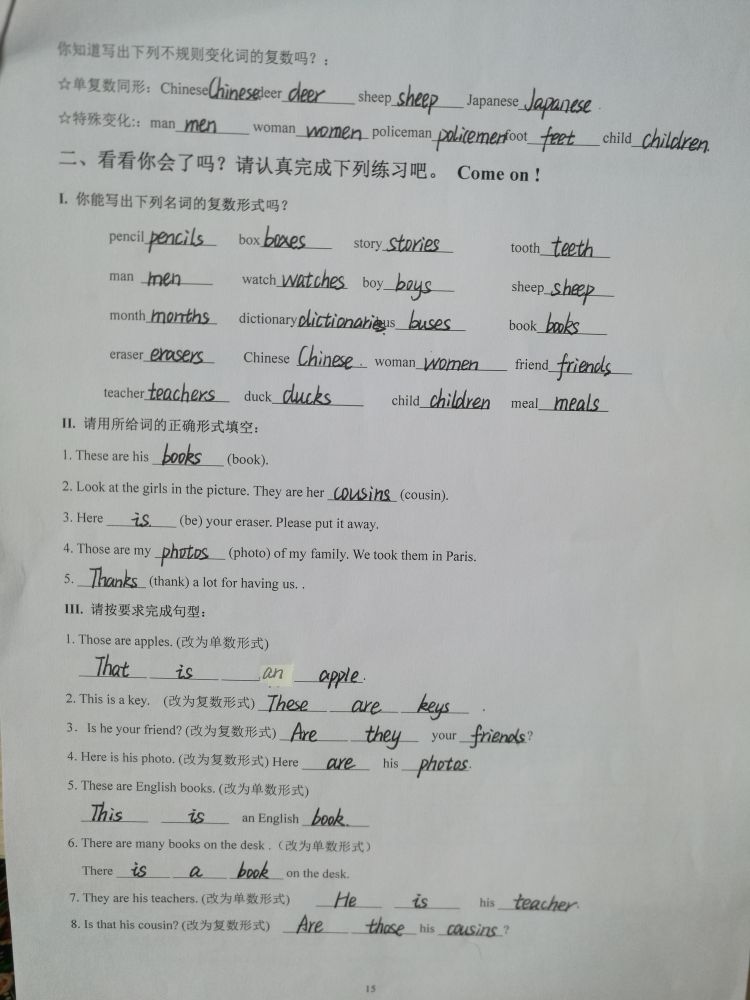 你知道写出下列不规则变化词的复数吗？：
☆单复数同形：Chinese Chinese deer deer sheep sheep Japanese Japanese.
☆特殊变化:：man men woman women policeman policemen foot feet child children.
二、看看你会了吗？请认真完成下列练习吧。 Come on !
I. 你能写出下列名词的复数形式吗？
pencil pencils box boxes story stories tooth teeth
man men watch watches boy boys sheep sheep
month months dictionary dictionaries bus buses book books
eraser erasers Chinese Chinese. woman women friend friends
teacher teachers duck ducks child children meal meals
II. 请用所给词的正确形式填空：
1. These are his books (book).
2. Look at the girls in the picture. They are her cousins (cousin).
3. Here is (be) your eraser. Please put it away.
4. Those are my photos (photo) of my family. We took them in Paris.
5. Thanks (thank) a lot for having us. .
III. 请按要求完成句型：
1. Those are apples. (改为单数形式)
That is an apple.
2. This is a key. (改为复数形式) These are keys .
3．Is he your friend? (改为复数形式) Are they your friends?
4. Here is his photo. (改为复数形式) Here are his photos.
5. These are English books. (改为单数形式)
This is an English book.
6. There are many books on the desk .（改为单数形式）
There is a book on the desk.
7. They are his teachers. (改为单数形式) He is his teacher.
8. Is that his cousin? (改为复数形式) Are those his cousins?
15